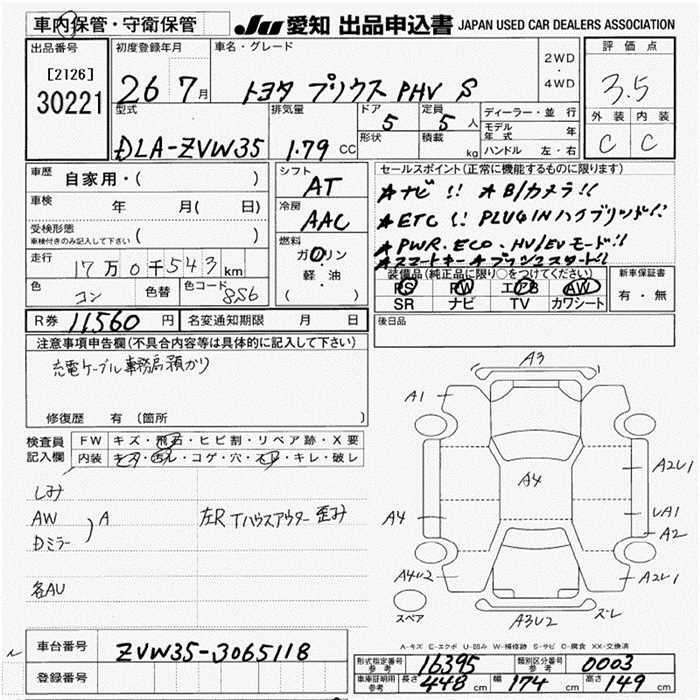 車内保管・守衛保管
JU 愛知 出品申込書 JAPAN USED CAR DEALERS ASSOCIATION
出品番号
[2126]
30221
初度登録年月
26 7月
車名・グレード
トヨタ プリウス PHV S
2WD
・
4WD
評価点
3.5
外装 内装
C C
型式
DLA-ZVW35
排気量
1.79 CC
ドア
5
定員
5 人
形状
積載
kg
ディーラー・並行
モデル年式 年
ハンドル 左・右
車歴
自家用・( )
車検
年 月( 日)
受検形態
車検付きのみ記入して下さい
( )
走行
17万0千543km
色
コン
色替
色コード
8S6
シフト
AT
冷房
AAC
燃料
ガソリン
・
軽・油
( )
セールスポイント(正常に機能するものに限ります)
★ナビ!! ★B/カメラ!!
★ETC!! PLUGINハイブリッド!!
★PWR.ECO.HV/EVモード!!
★スマートキー★プッシュスタート!!
装備品(純正品に限り○をつけてください)
PS PW エアB AW
SR ナビ TV カワシート
新車保証書
有・無
後日品
R券 11,560 円
名変通知期限 月 日
注意事項申告欄(不具合内容等は具体的に記入して下さい)
充電ケーブル事務局預かり
修復歴 有 (箇所 )
検査員
記入欄
FW キズ・飛石・ヒビ割・リペア跡・X要
内装 キズ・汚レ・コゲ・穴・スレ・キレ・破レ
しみ
AW
Dミラー
A
左R Tハウスアウター歪み
各AU
A3
A1
A4
A2U1
A4
UA1
A2
A4U2
A2U1
A3U2
ズレ
スペア
A-キズ E-エクボ U-凹み W-補修跡 S-サビ C-腐食 XX-交換済
車台番号 ZVW35-3065118
登録番号
形式指定番号
参考
16395
類別区分番号
参考
0003
車庫証明用
参考
長さ 448 cm 幅 174 cm 高さ 149 cm